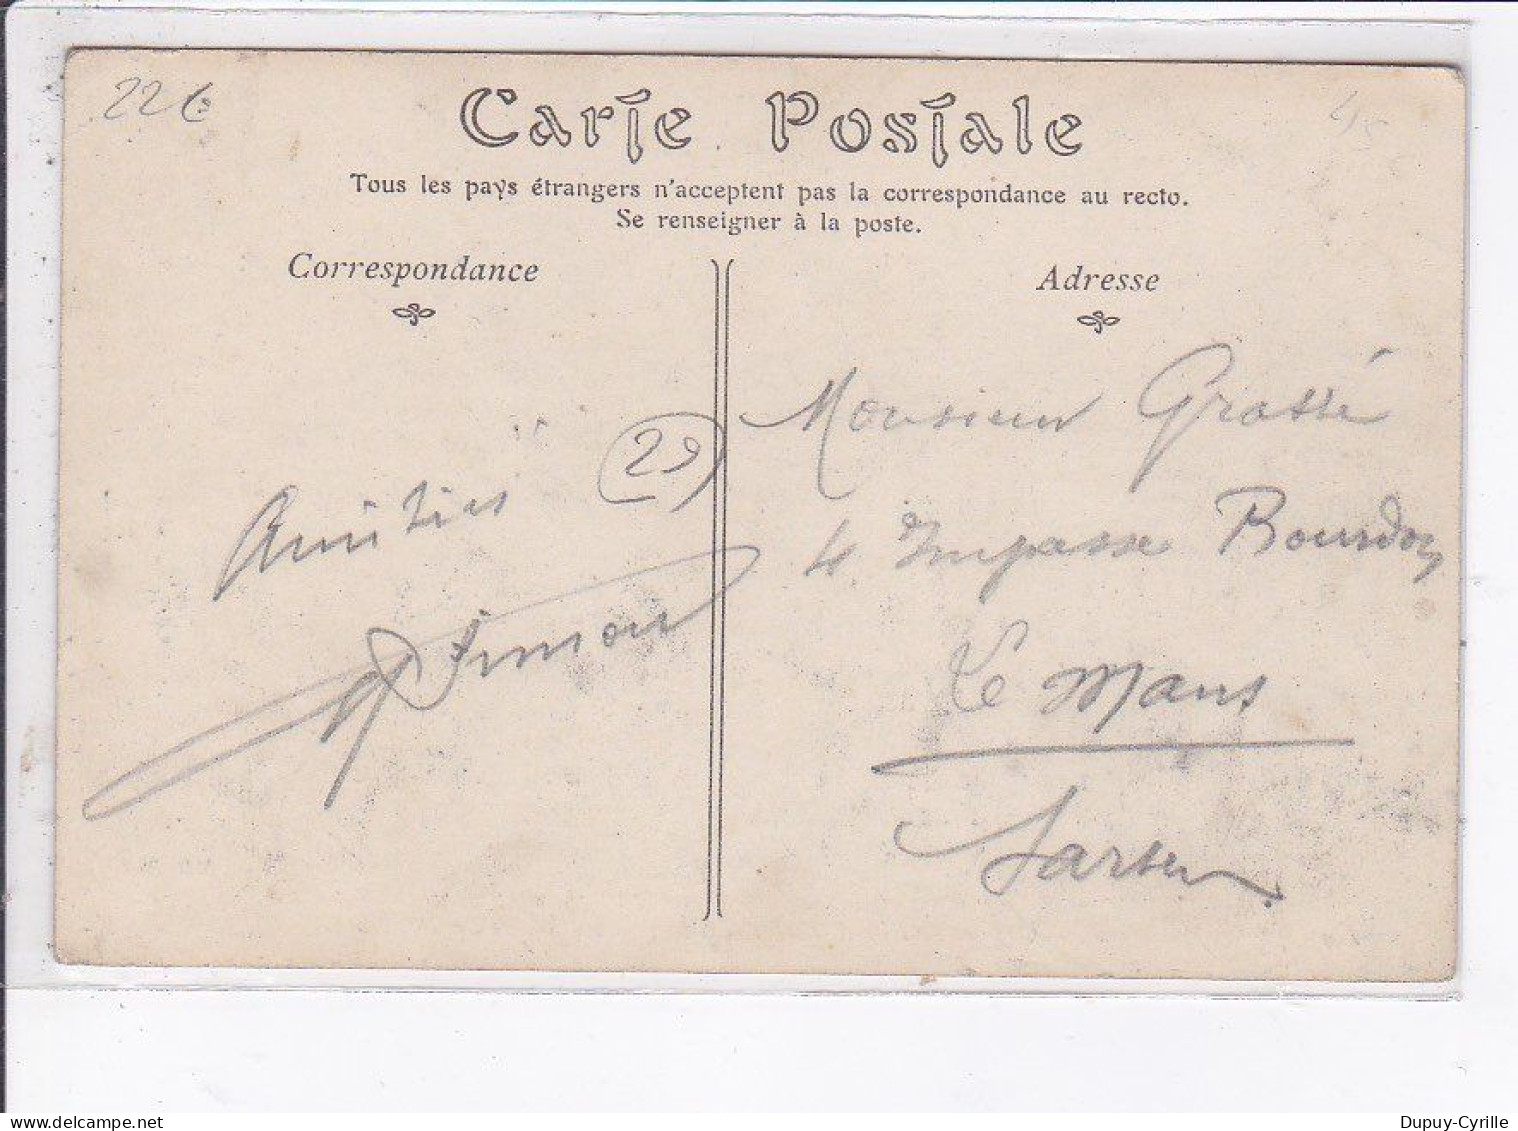 22€
45
Carte Postale
Tous les pays étrangers n'acceptent pas la correspondance au recto.
Se renseigner à la poste.
Correspondance
Adresse
29
Amitiés
Simon
Monsieur Grassé
4 Impasse Bourdon
Le Mans
Sarthe
delcampe.net
Dupuy-Cyrille